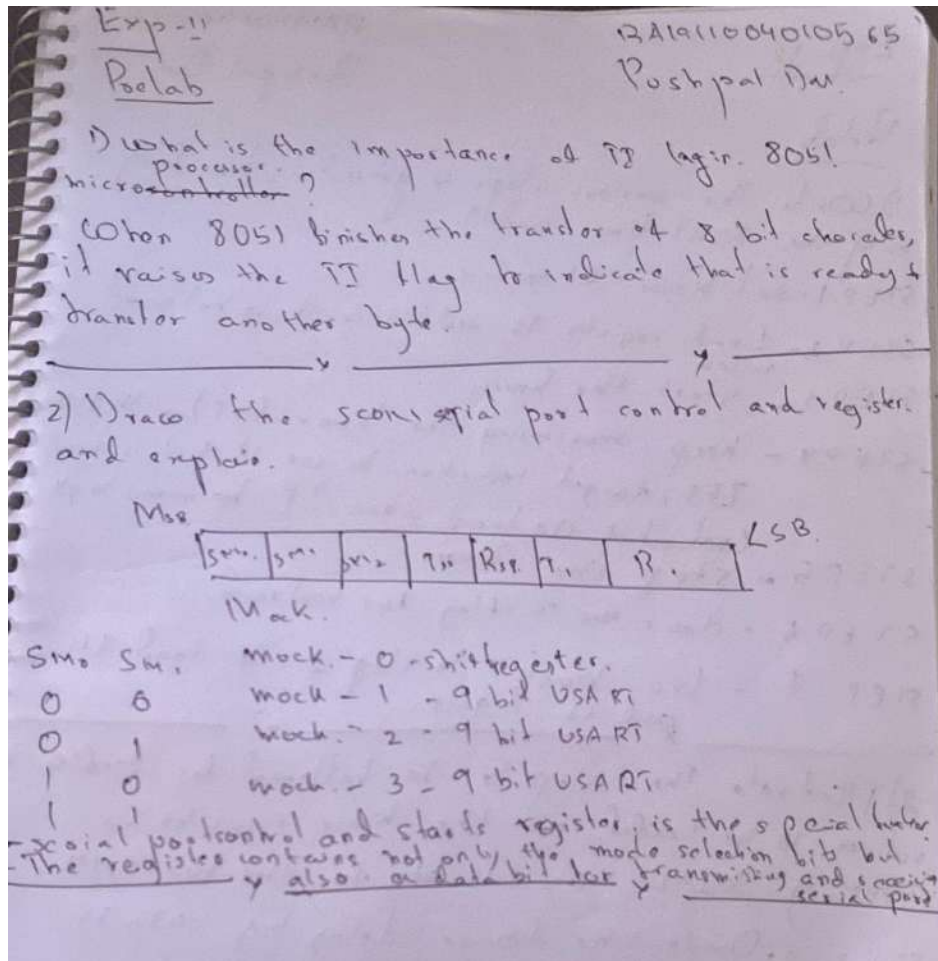 Exp-11
RA1911004010565
Prelab
Pushpal Das.
1) What is the importance of TI flag in 8051
processor
micro controller ?
When 8051 finishes the transfer of 8 bit character,
it raises the TI flag to indicate that is ready to
transfer another byte.
2) Draw the scon serial port control and register.
and explain.
MSB
LSB.
SM0. SM1 SM2 RB8 TI RI
SM0 SM1 - 0 - shift register.
0 0 - 1 - 9-bit USART
0 1 - 2 - 9 bit USART
1 0 - 3 - 9 bit USART.
1 1
- serial port control and status register, is the special
- The register contains not only the mode selection bits but
also a data bit for transmitting and
serial port